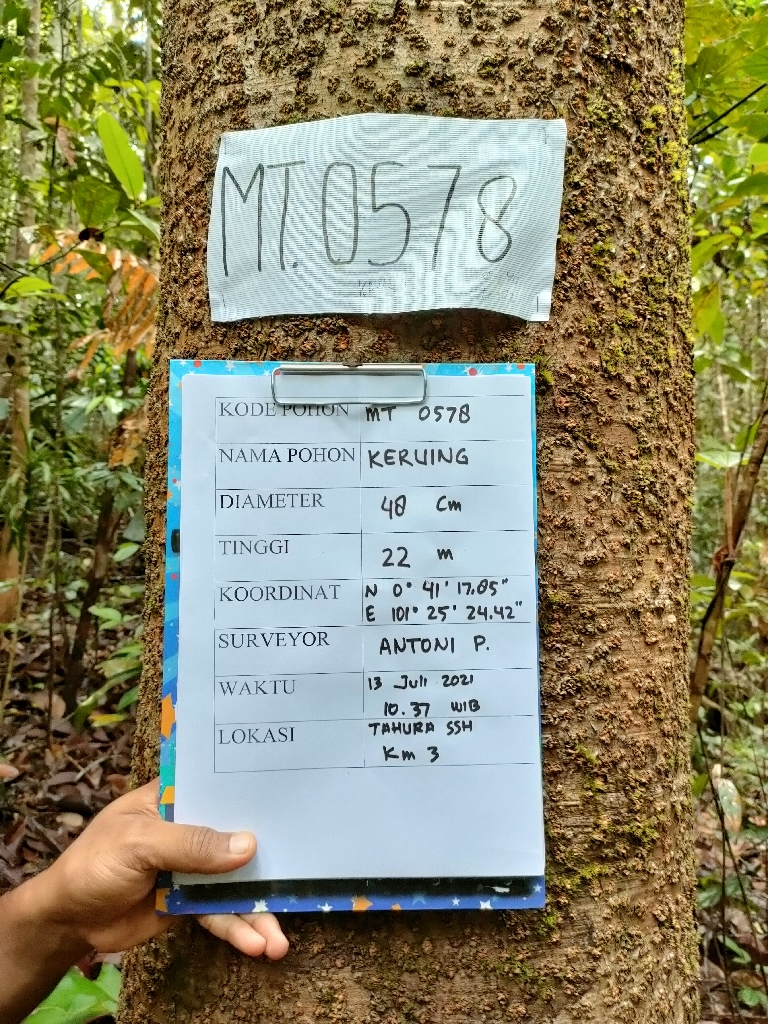 MT.0578
KODE POHON MT 0578
NAMA POHON KERUING
DIAMETER 48 Cm
TINGGI 22 m
KOORDINAT N 0° 41' 17.05"
E 101° 25' 24.42"
SURVEYOR ANTONI P.
WAKTU 13 Juli 2021
10.37 WIB
LOKASI TAHURA SSH
Km 3